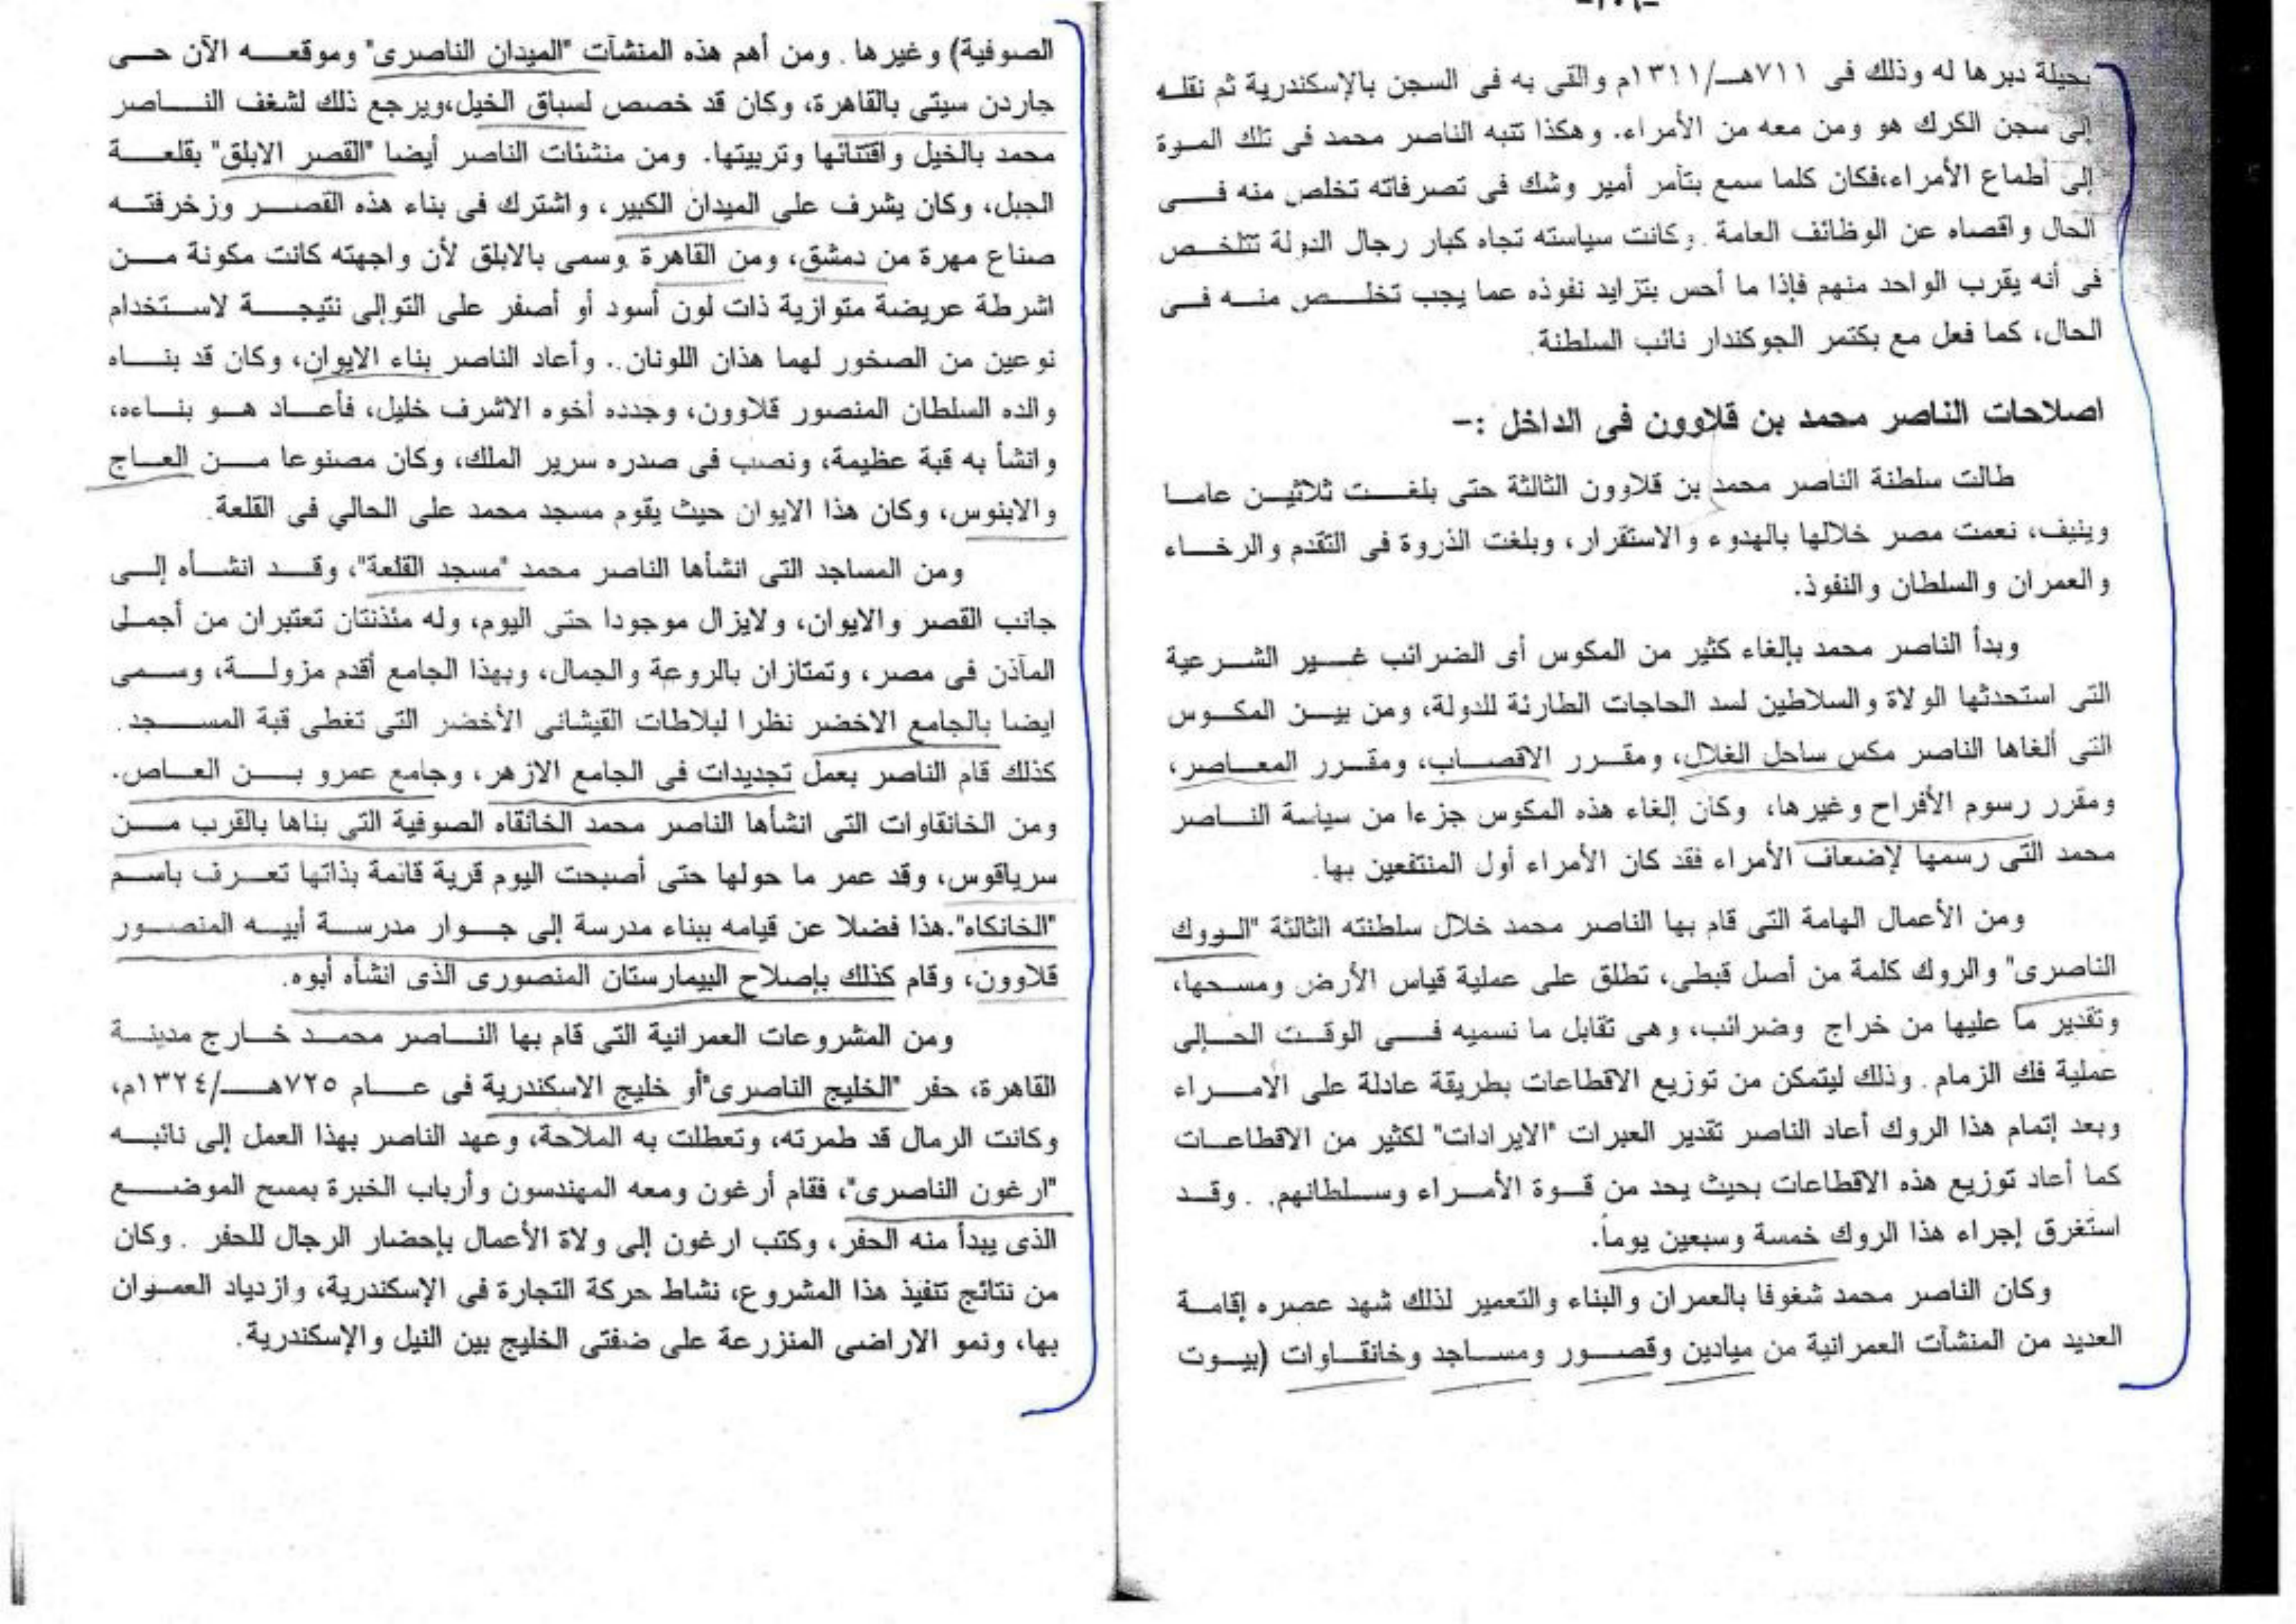 بحيلة دبرها له وذلك فى ٧١١هـ/١٣١١م والقى به فى السجن بالإسكندرية ثم نقله
إلى سجن الكرك هو ومن معه من الأمراء. وهكذا تنبه الناصر محمد فى تلك المرة
إلى أطماع الأمراء،فكان كلما سمع بتآمر أمير وشك فى تصرفاته تخلص منه فى
الحال واقصاه عن الوظائف العامة. وكانت سياسته تجاه كبار رجال الدولة تتلخص
فى أنه يقرب الواحد منهم فإذا ما أحس بتزايد نفوذه عما يجب تخلص منه فى
الحال، كما فعل مع بكتمر الجوكندار نائب السلطنة.
اصلاحات الناصر محمد بن قلاوون فى الداخل :-
طالت سلطنة الناصر محمد بن قلاوون الثالثة حتى بلغت ثلاثين عاما
وينيف، نعمت مصر خلالها بالهدوء والاستقرار، وبلغت الذروة فى التقدم والرخاء
والعمران والسلطان والنفوذ.
وبدأ الناصر محمد بإلغاء كثير من المكوس أى الضرائب غير الشرعية
التى استحدثها الولاة والسلاطين لسد الحاجات الطارئة للدولة، ومن بين المكوس
التى ألغاها الناصر مكس ساحل الغلال، ومقرر الاقصاب، ومقرر المعاصر،
ومقرر رسوم الأفراح وغيرها، وكان إلغاء هذه المكوس جزءا من سياسة الناصر
محمد التى رسمها لإضعاف الأمراء فقد كان الأمراء أول المنتفعين بها.
ومن الأعمال الهامة التى قام بها الناصر محمد خلال سلطنته الثالثة "الروك
الناصرى" والروك كلمة من أصل قبطى، تطلق على عملية قياس الأرض ومسحها،
وتقدير ما عليها من خراج وضرائب، وهى تقابل ما نسميه فى الوقت الحالى
عملية فك الزمام. وذلك ليتمكن من توزيع الاقطاعات بطريقة عادلة على الامراء
وبعد إتمام هذا الروك أعاد الناصر تقدير العبرات "الايرادات" لكثير من الاقطاعات
كما أعاد توزيع هذه الاقطاعات بحيث يحد من قوة الأمراء وسلطانهم. . وقد
استغرق إجراء هذا الروك خمسة وسبعين يوماً.
وكان الناصر محمد شغوفا بالعمران والبناء والتعمير لذلك شهد عصره إقامة
العديد من المنشآت العمرانية من ميادين وقصور ومساجد وخانقاوات (بيوت
الصوفية) وغيرها. ومن أهم هذه المنشآت "الميدان الناصرى" وموقعه الآن حى
جاردن سيتى بالقاهرة، وكان قد خصص لسباق الخيل،ويرجع ذلك لشغف الناصر
محمد بالخيل واقتنائها وتربيتها. ومن منشئات الناصر أيضا "القصر الابلق" بقلعة
الجبل، وكان يشرف على الميدان الكبير، واشترك فى بناء هذه القصر وزخرفته
صناع مهرة من دمشق، ومن القاهرة وسمى بالابلق لأن واجهته كانت مكونة من
اشرطة عريضة متوازية ذات لون أسود أو أصفر على التوالى نتيجة لاستخدام
نوعين من الصخور لهما هذان اللونان.. وأعاد الناصر بناء الايوان، وكان قد بناه
والده السلطان المنصور قلاوون، وجدده أخوه الاشرف خليل، فأعاد هو بناءه،
وانشأ به قبة عظيمة، ونصب فى صدره سرير الملك، وكان مصنوعا من العاج
والابنوس، وكان هذا الايوان حيث يقوم مسجد محمد على الحالي فى القلعة.
ومن المساجد التى انشأها الناصر محمد "مسجد القلعة"، وقد انشأه إلى
جانب القصر والايوان، ولايزال موجودا حتى اليوم، وله مئذنتان تعتبران من أجمل
المآذن فى مصر، وتمتازان بالروعة والجمال، وبهذا الجامع أقدم مزولة، وسمى
ايضا بالجامع الاخضر نظرا لبلاطات القيشانى الأخضر التى تغطى قبة المسجد.
كذلك قام الناصر بعمل تجديدات فى الجامع الازهر، وجامع عمرو بن العاص.
ومن الخانقاوات التى انشأها الناصر محمد الخانقاه الصوفية التى بناها بالقرب من
سرياقوس، وقد عمر ما حولها حتى أصبحت اليوم قرية قائمة بذاتها تعرف باسم
"الخانكاه".هذا فضلا عن قيامه ببناء مدرسة إلى جوار مدرسة أبيه المنصور
قلاوون، وقام كذلك بإصلاح البيمارستان المنصورى الذى انشأه أبوه.
ومن المشروعات العمرانية التى قام بها الناصر محمد خارج مدينة
القاهرة، حفر "الخليج الناصرى"أو خليج الاسكندرية فى عام ٧٢٥هـ/١٣٢٤م،
وكانت الرمال قد طمرته، وتعطلت به الملاحة، وعهد الناصر بهذا العمل إلى نائبه
"ارغون الناصرى"، فقام أرغون ومعه المهندسون وأرباب الخبرة بمسح الموضع
الذى يبدأ منه الحفر، وكتب ارغون إلى ولاة الأعمال بإحضار الرجال للحفر . وكان
من نتائج تنفيذ هذا المشروع، نشاط حركة التجارة فى الإسكندرية، وازدياد العمران
بها، ونمو الاراضى المنزرعة على ضفتى الخليج بين النيل والإسكندرية.